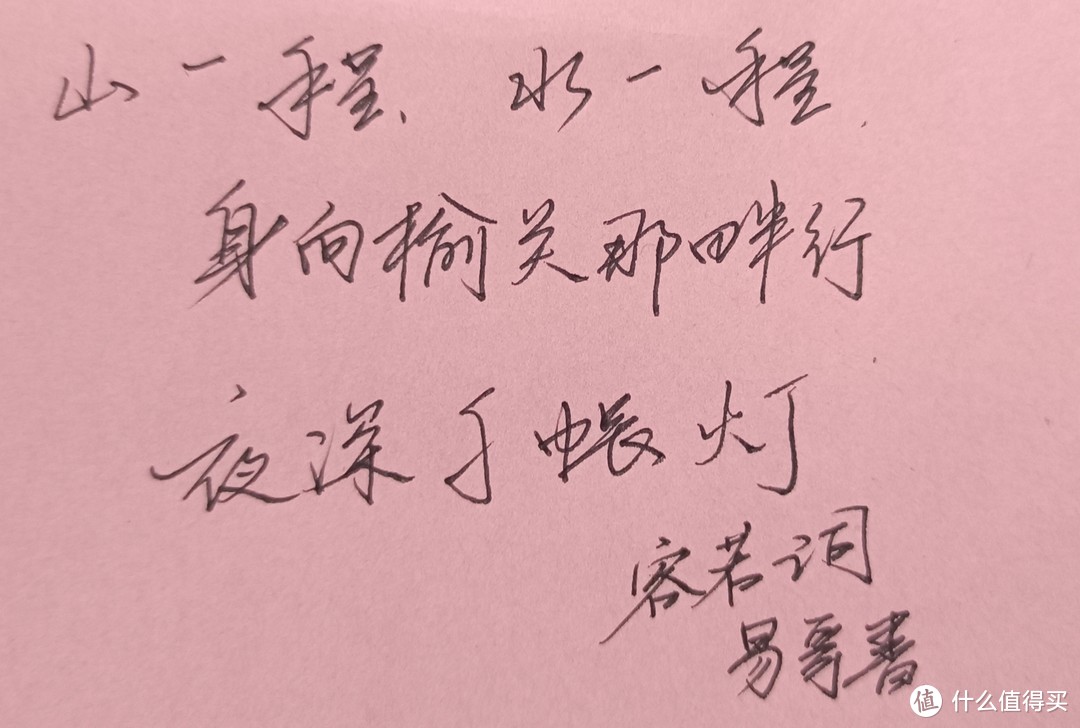 山一程、水一程、
身向榆关那畔行
夜深千帐灯
容若词
易哥书
值 什么值得买